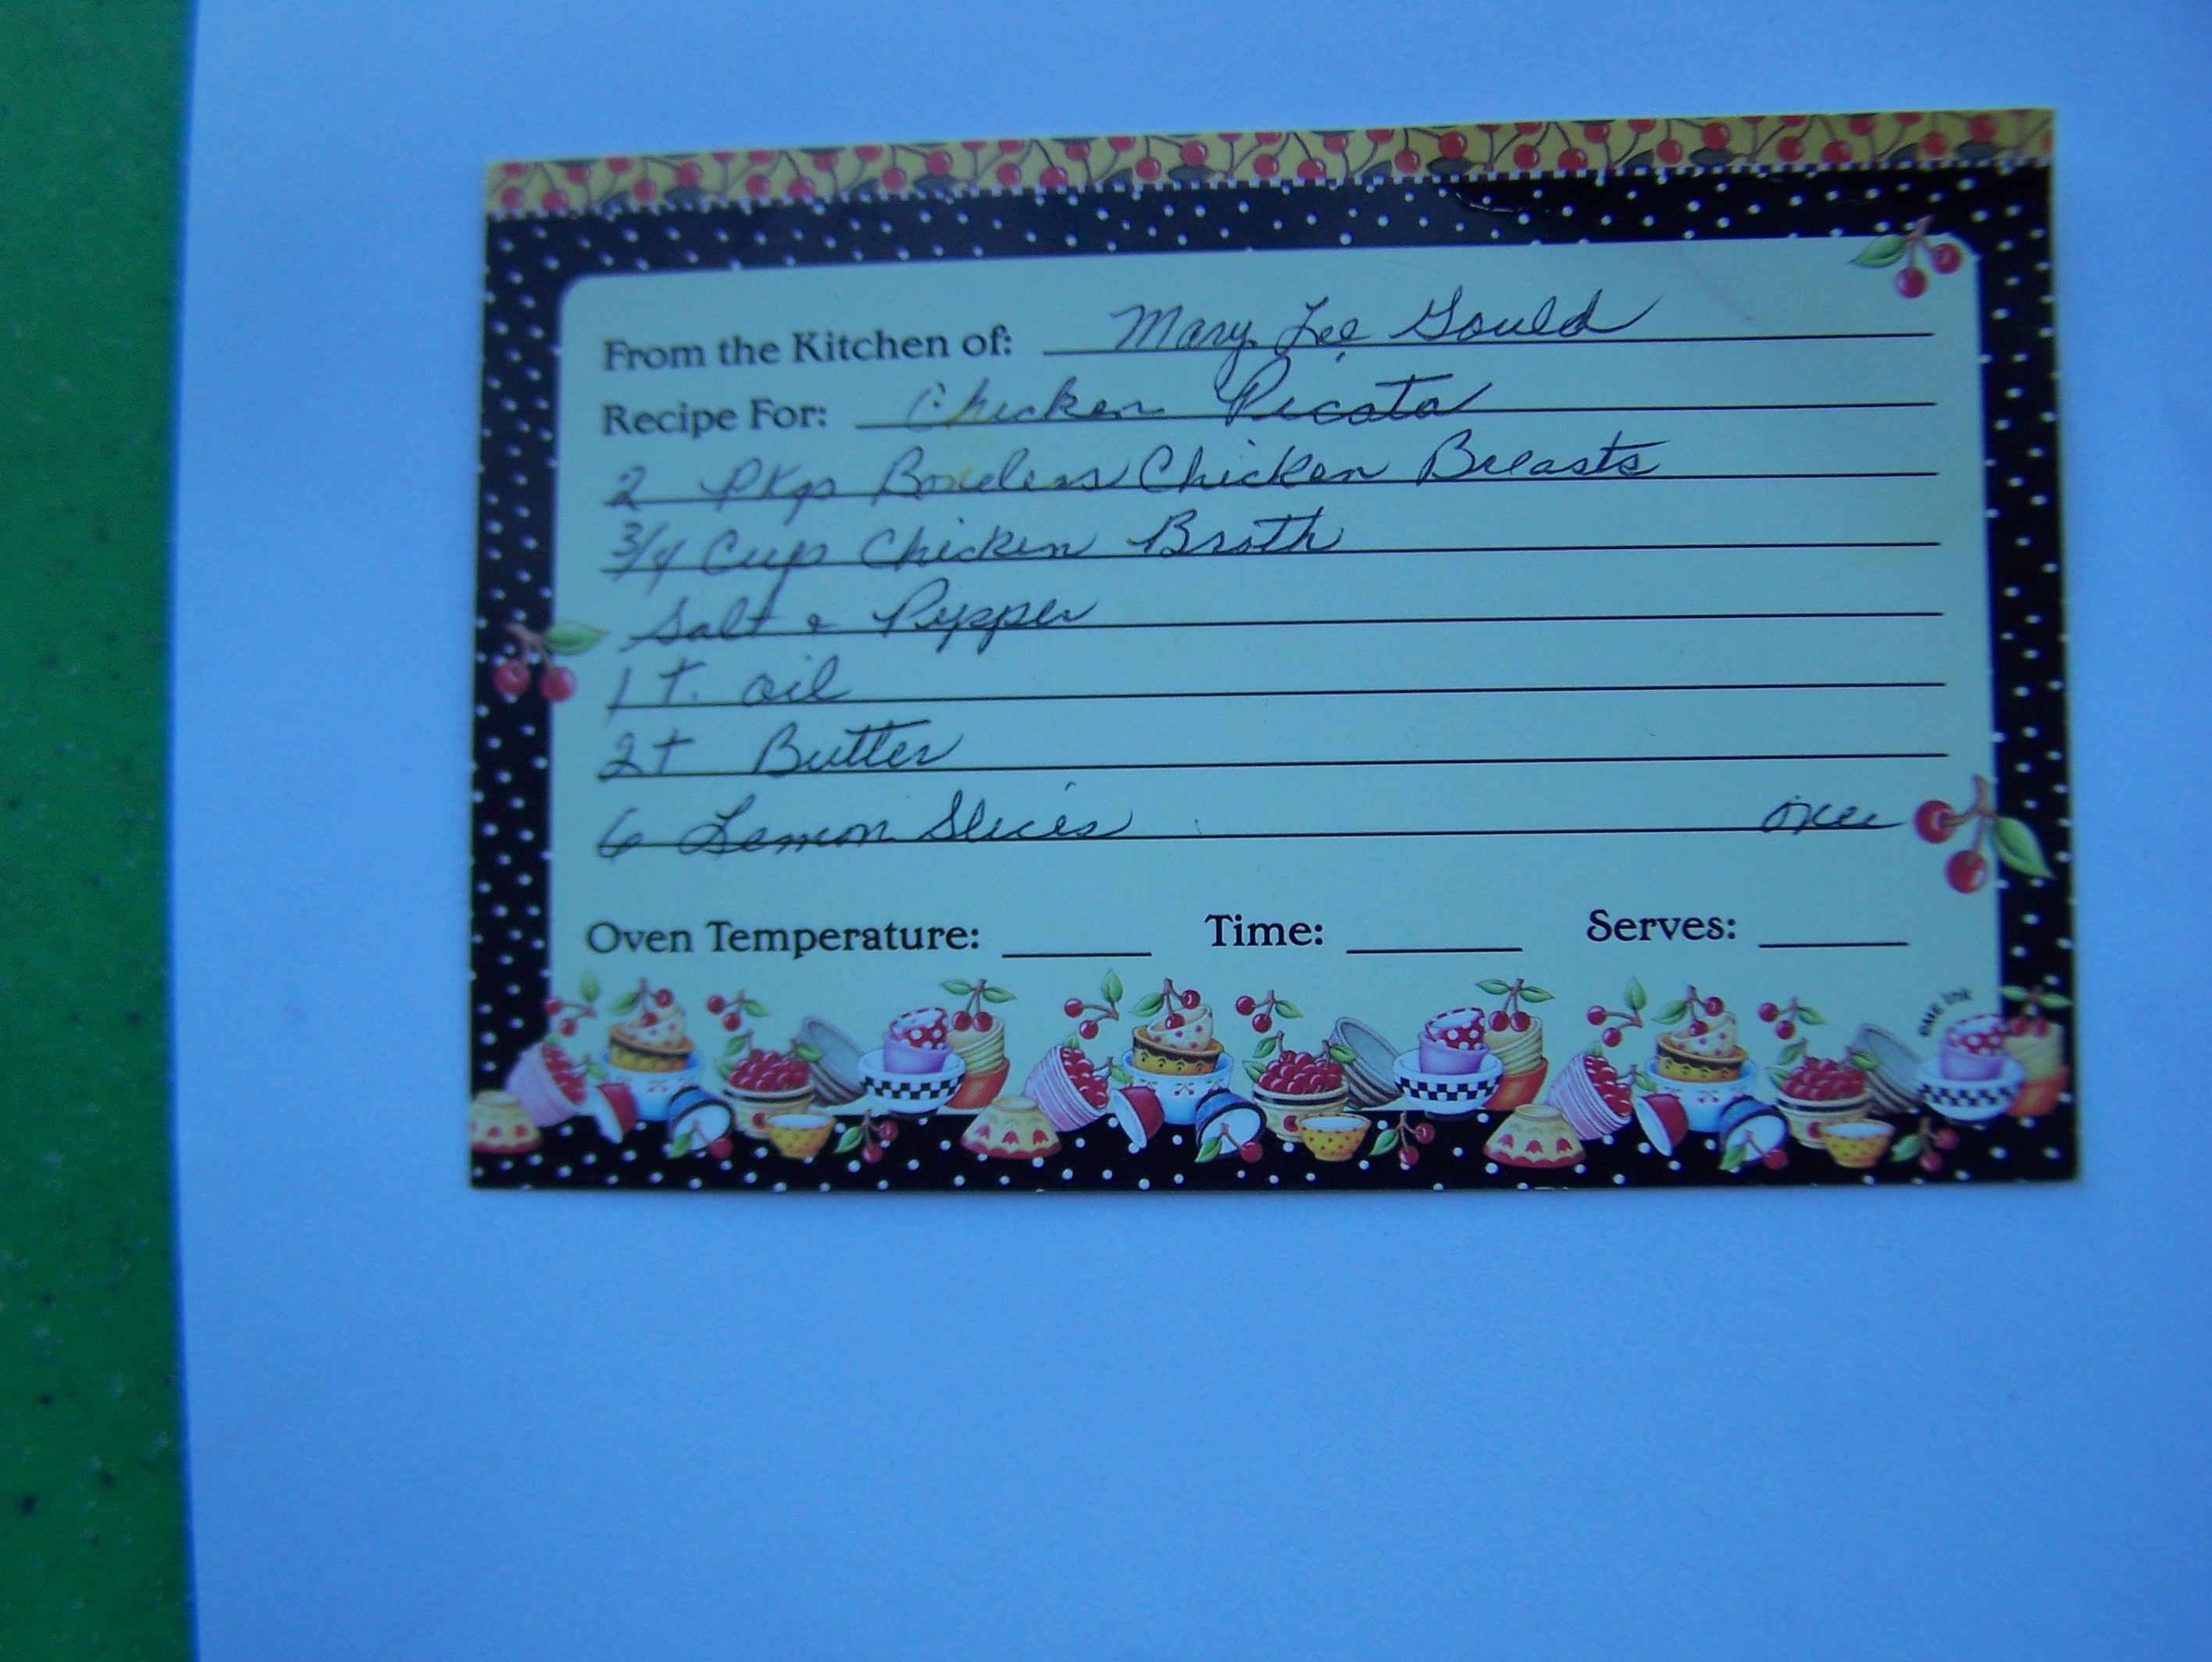 From the Kitchen of: Mary Lee Gould
Recipe For: Chicken Picata
2 Pkgs Boneless Chicken Breasts
3/4 Cup Chicken Broth
Salt & Pepper
1 T. oil
2 T Butter
6 Lemon Slices over
Oven Temperature: Time: Serves:
©ME Ink